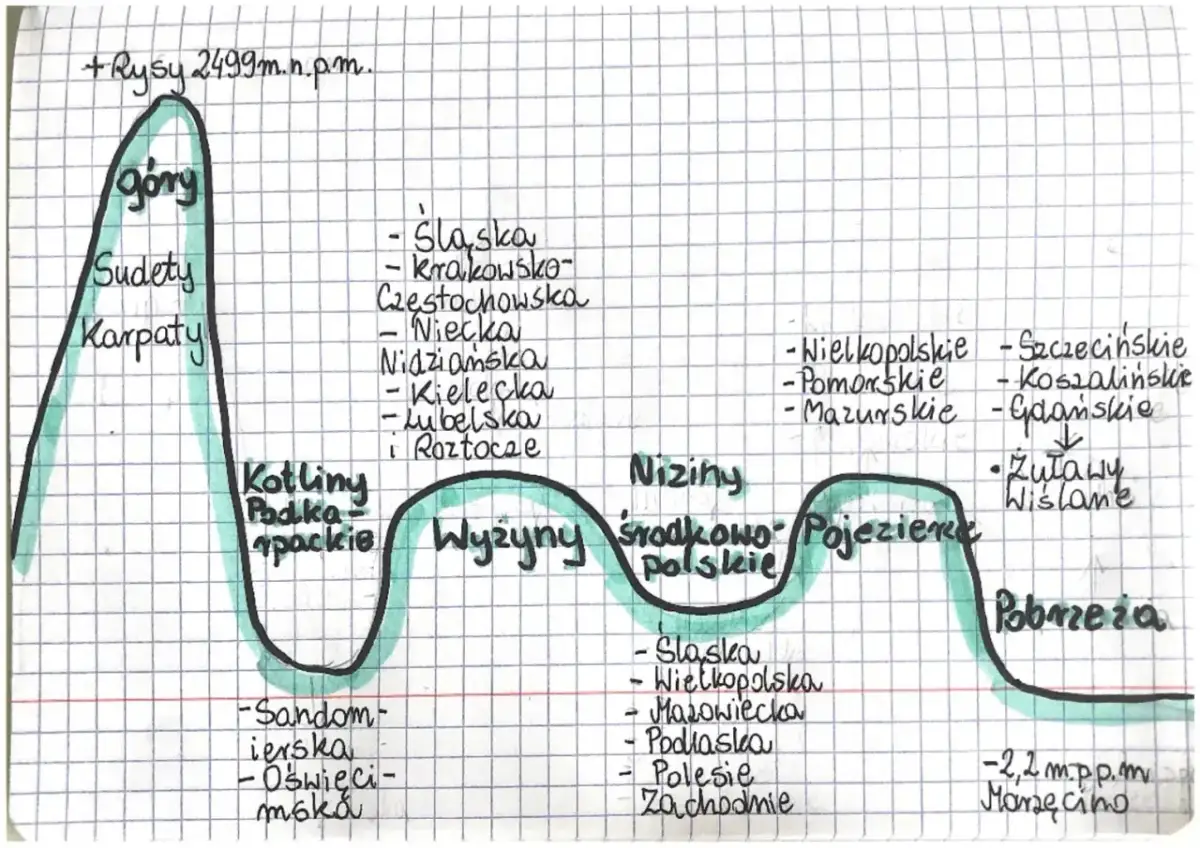 +Rysy 2499m.n.p.m.
góry
Sudety
Karpaty
Kotliny
Podka-
rpackie
-Sandom-
ierska
-Oświęci-
mska
- Śląska
- Krakowsko-
Częstochowska
- Niecka
Nidziańska
- Kielecka
- Lubelska
i Roztocze
Wyżyny
Niziny
środkowo-
polskie
- Śląska
- Wielkopolska
- Mazowiecka
- Podlaska
- Polesie
Zachodnie
-Wielkopolskie
-Pomorskie
- Mazurskie
Pojezierze
-Szczecińskie
-Koszalińskie
-Gdańskie
↓
• Żuławy
Wiślane
Pobrzeża
-2,2 m.p.p.m
Marzęcino